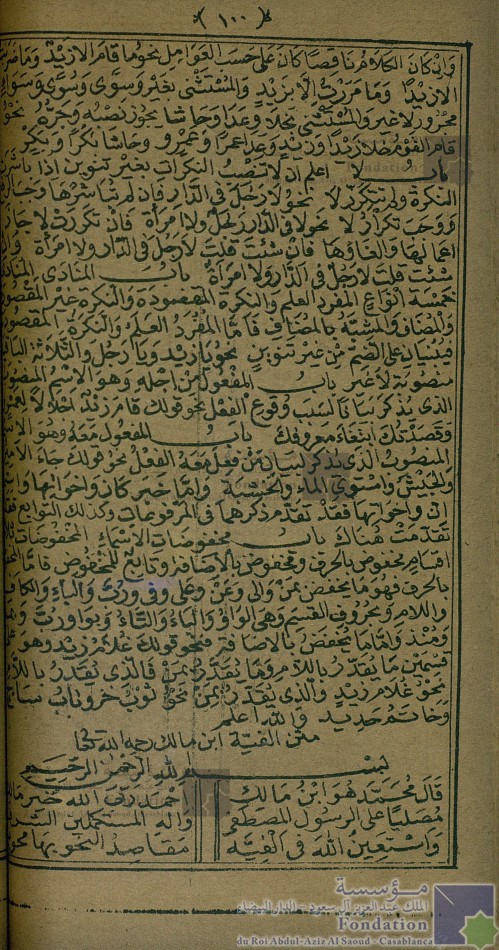 ١٠٠
وان كان الكلام ناقصا كان على حسب العوامل نحو ما قام الا زيد وما ضربت
الا زيدا وما مررت إلا بزيد والمستثنى بغير وسوى وسوى وسواء
مجرور لا غير والمستثنى بخلا وعدا وحاشا يجوز نصبه وجره نحو
قام القوم خلا زيدا وزيد وعدا عمرا وعمرو وحاشا بكرا وبكر
باب لا اعلم ان لا تنصب النكرات بغير تنوين اذا باشرت
النكرة ولم تتكرر لا نحو لا رجل في الدار فان لم تباشرها
ووجب تكرار لا نحو لا في الدار رجل ولا امرأة فان تكررت لا جاز
اعمالها والغاؤها فان شئت قلت لا رجل في الدار ولا امرأة وان
شئت قلت لا رجل في الدار ولا امرأة باب المنادى المنادى
خمسة انواع المفرد العلم والنكرة المقصودة والنكرة غير المقصودة
والمضاف والمشبه بالمضاف فاما المفرد العلم والنكرة المقصودة
فيبنيان على الضم من غير تنوين نحو يا زيد ويا رجل والثلاثة الباقية
منصوبة لا غير باب المفعول من اجله وهو الاسم المنصوب
الذي يذكر بيانا لسبب وقوع الفعل نحو قولك قام زيد اجلالا لعمرو
وقصدتك ابتغاء معروفك باب المفعول معه وهو الاسم
المنصوب الذي يذكر لبيان من فعل معه الفعل نحو قولك جاء الامير
والجيش واستوى الماء والخشبة واما خبر كان واخواتها واسم
ان واخواتها فقد تقدم ذكرهما في المرفوعات وكذلك التوابع فقد
تقدمت هناك باب مخفوضات الاسماء المخفوضات ثلاثة
اقسام مخفوض بالحرف ومخفوض بالاضافة وتابع للمخفوض فاما المخفوض
بالحرف فهو ما يخفض بمن والى وعن وعلى وفي ورب والباء والكاف
واللام وبحروف القسم وهي الواو والباء والتاء وبواو رب وبمذ
ومنذ واما ما يخفض بالاضافة فنحو قولك غلام زيد وهو على
قسمين ما يقدر باللام وما يقدر بمن فالذي يقدر باللام
نحو غلام زيد والذي يقدر بمن نحو ثوب خز وباب ساج
وخاتم حديد والله اعلم
متن الفية ابن مالك رحمه الله تعالى
بسم الله الرحمن الرحيم
قال محمد هو ابن مالك احمد ربي الله خير مالك
مصليا على الرسول المصطفى واله المستكملين الشرفا
واستعين الله في الفيه مقاصد النحو بها محويه
مؤسسة
الملك عبد العزيز آل سعود - الدار البيضاء
Fondation
du Roi Abdul-Aziz Al Saoud - Casablanca